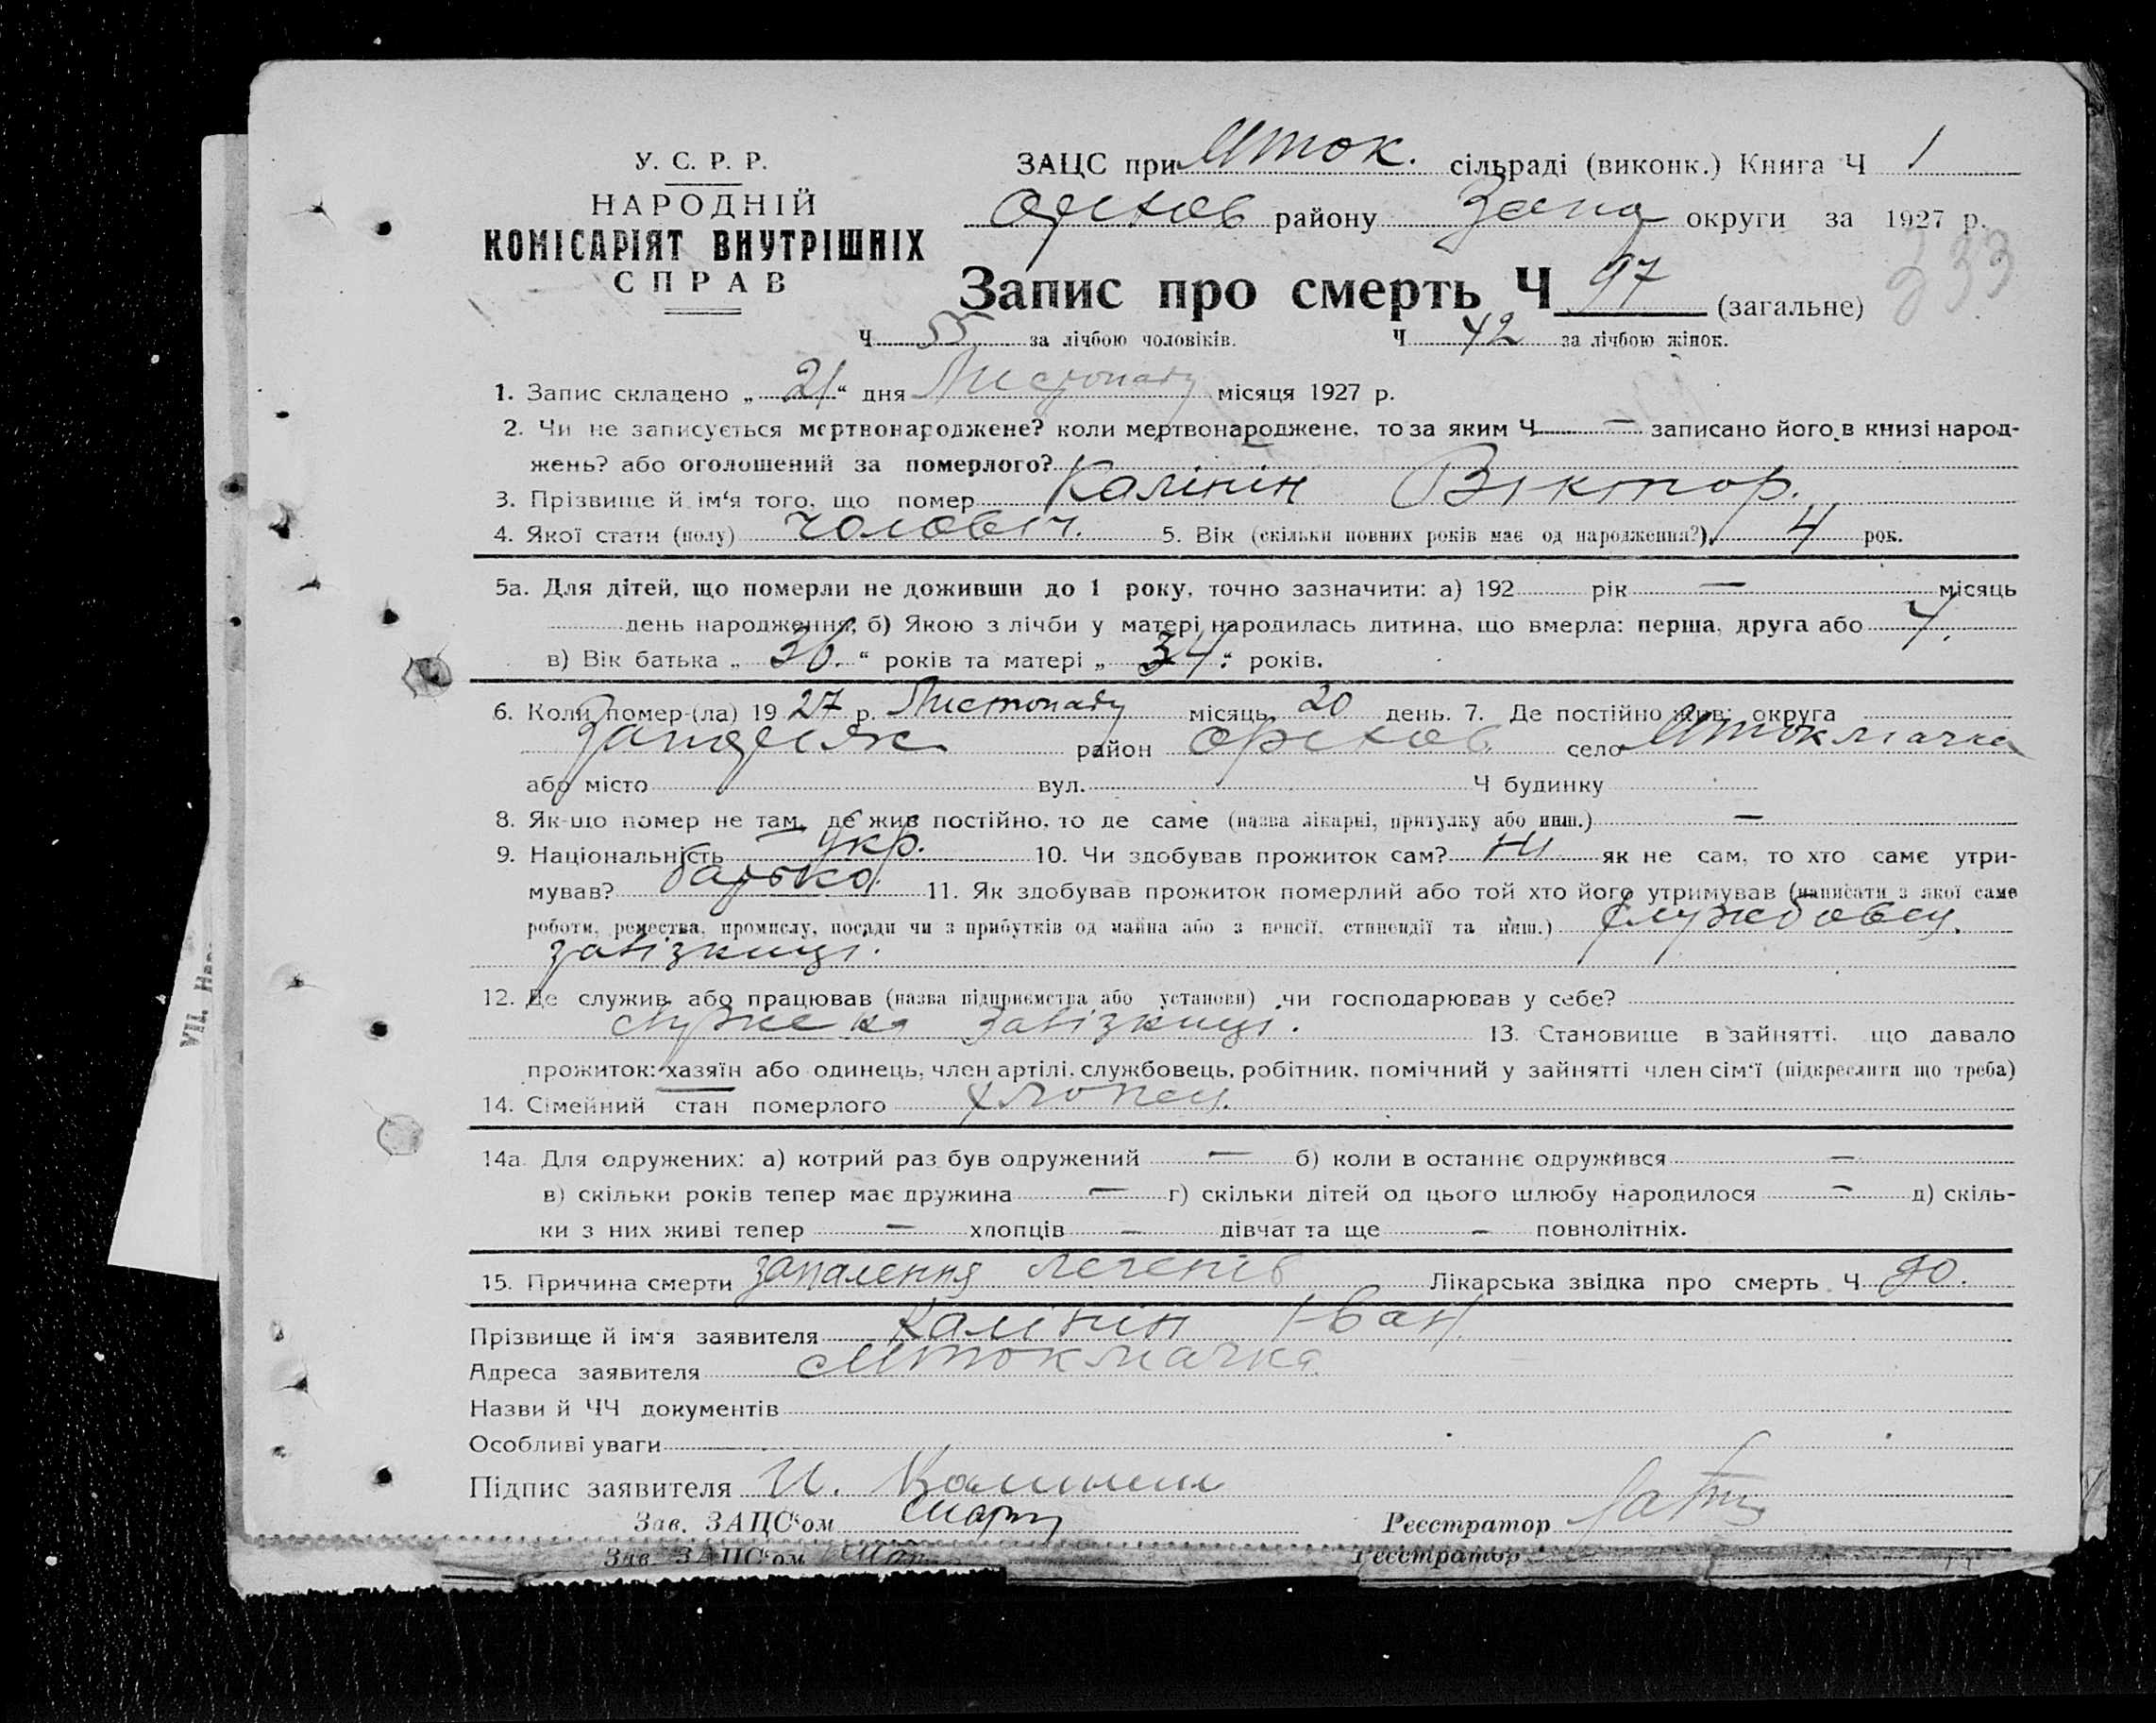 У. С. Р. Р.
НАРОДНІЙ
КОМІСАРІЯТ ВНУТРІШНІХ
СПРАВ
ЗАЦС при Мток. сільраді (виконк.) Книга Ч 1
Оріхов району Запор округи за 1927 р.
233
Запис про смерть Ч 97 (загальне)
Ч 55 за лічбою чоловіків. Ч 42 за лічбою жінок.
1. Запис складено „ 21 “ дня Листопаду місяця 1927 р.
2. Чи не записується мертвонароджене? коли мертвонароджене, то за яким Ч — записано його в книзі народ-
жень? або оголошений за померлого?
3. Прізвище й ім‘я того, що помер Калінін Віктор.
4. Якої стати (полу) чоловіч. 5. Вік (скільки повних років має од народження?) 4 рок.
5а. Для дітей, що померли не доживши до 1 року, точно зазначити: а) 192 рік — місяць
день народження; б) Якою з лічби у матері народилась дитина, що вмерла: перша, друга або 7.
в) Вік батька „ 36. “ років та матері „ 34. “ років.
6. Коли помер-(ла) 19 27 р. Листопаду місяць 20 день. 7. Де постійно жив: округа
Запоріж район Оріхов село Мток мачка
або місто вул. Ч будинку
8. Як-що помер не там, де жив постійно, то де саме (назва лікарні, притулку або инш.) —
9. Національність укр. 10. Чи здобував прожиток сам? ні як не сам, то хто саме утри-
мував? батько. 11. Як здобував прожиток померлий або той хто його утримував (написати з якої саме
роботи, ремества, промислу, посади чи з прибутків од майна або з пенсії, стипендії та инш.) службовец.
завізниці.
12. Де служив або працював (назва підприємства або установи) чи господарював у себе?
завізниці. 13. Становище в зайнятті, що давало
прожиток: хазяїн або одинець, член артілі, службовець, робітник, помічний у зайнятті член сім‘ї (підкреслити що треба)
14. Сімейний стан померлого хлопец.
14а. Для одружених: а) котрий раз був одружений — б) коли в останнє одружився —
в) скільки років тепер має дружина — г) скільки дітей од цього шлюбу народилося — д) скіль-
ки з них живі тепер — хлопців — дівчат та ще — повнолітніх.
15. Причина смерти запалення легенів Лікарська звідка про смерть Ч 90.
Прізвище й ім‘я заявителя Калінін Іван
Адреса заявителя Мток мачка
Назви й ЧЧ документів
Особливі уваги
Підпис заявителя И. Калинин
Зав. ЗАЦС‘ом Реєстратор
Зав. ЗАЦС‘ом Реєстратор